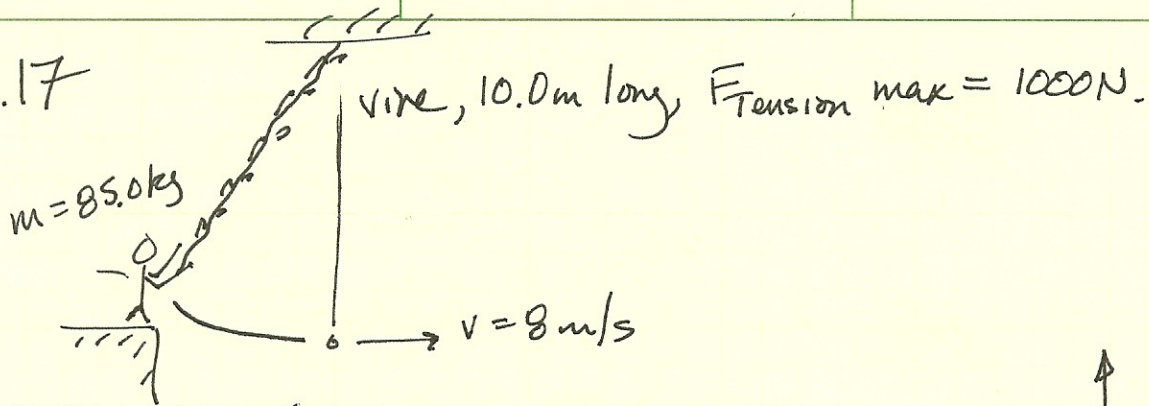 .17
vine, 10.0m long, F Tension max = 1000N.
m=85.0kg
v = 8 m/s